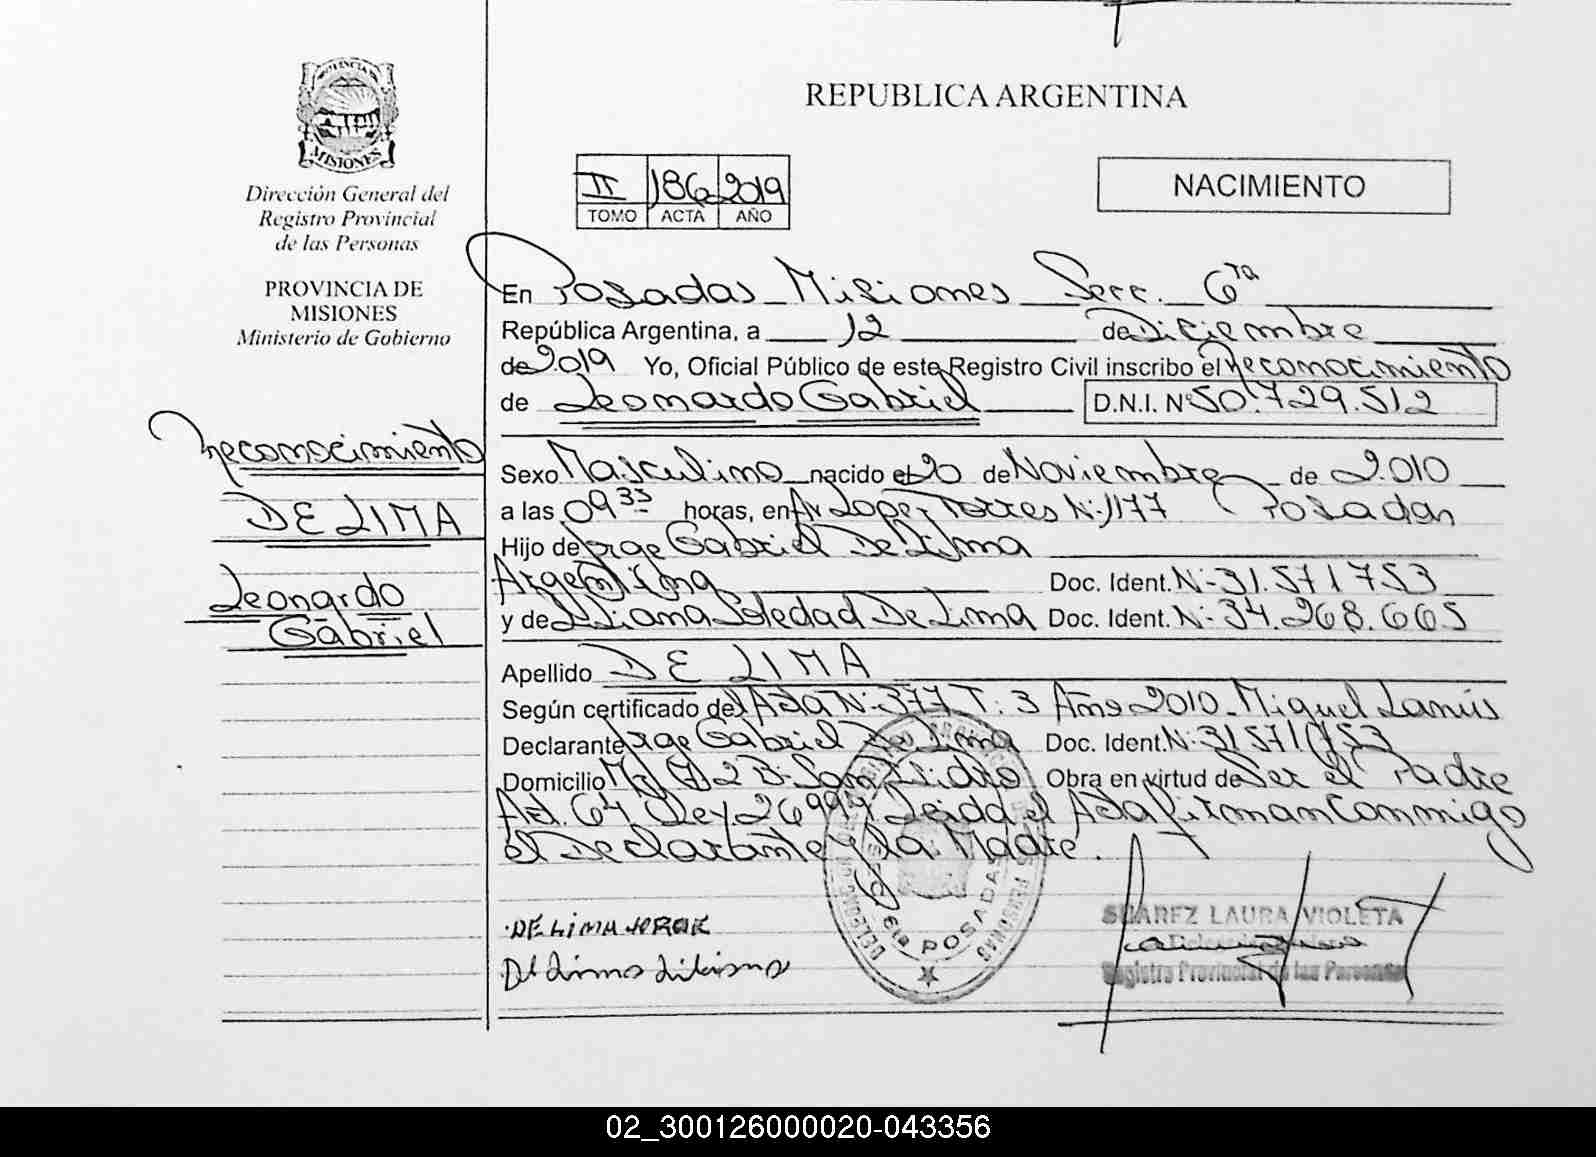 PROVINCIA DE
MISIONES
Dirección General del
Registro Provincial
de las Personas
PROVINCIA DE
MISIONES
Ministerio de Gobierno
Reconocimiento
DE LIMA
Leonardo
Gabriel
REPUBLICA ARGENTINA
II 186 2019
TOMO ACTA AÑO
NACIMIENTO
En Posadas Misiones Secc. 6ta
República Argentina, a 12 de Diciembre
de 2.019 Yo, Oficial Público de este Registro Civil inscribo el Reconocimiento
de Leonardo Gabriel D.N.I. Nº 50.729.512
Sexo Masculino nacido el 20 de Noviembre de 2.010
a las 09 35 horas, en Av Lopez Torres N-1177 Posadas
Hijo de Jorge Gabriel De Lima
Argentina Doc. Ident. N-31.571753
y de Liliana Soledad De Lima Doc. Ident. N- 34.268.665
Apellido DE LIMA
Según certificado del Acta N-377 T: 3 Año 2010- Miguel Lanús
Declarante Jorge Gabriel De Lima Doc. Ident. N-31571753
Domicilio San Isidro Obra en virtud de Ser el Padre
Art. 64 Ley 26994 Leida el Acta firman Conmigo
el Declarante y la Madre.
DE LIMA JORGE
De Lima Liliana
6ta POSADAS
SUAREZ LAURA VIOLETA
Registro Provincial de las Personas
02_300126000020-043356